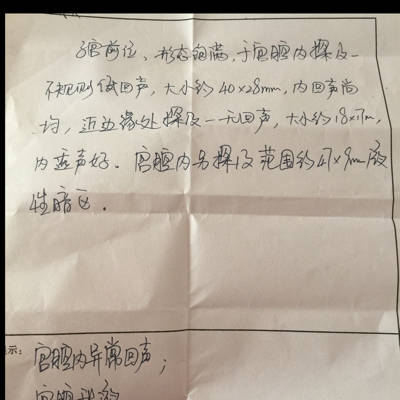 子宫前位、形态饱满,于宫腔内探及一
不规则低回声,大小约40×28mm,内回声尚
均,近边缘处探及一无回声,大小约18×17m,
内透声好。宫腔内另探及范围约47×9mm液
性暗区.
示:宫腔内异常回声;
宫腔积液